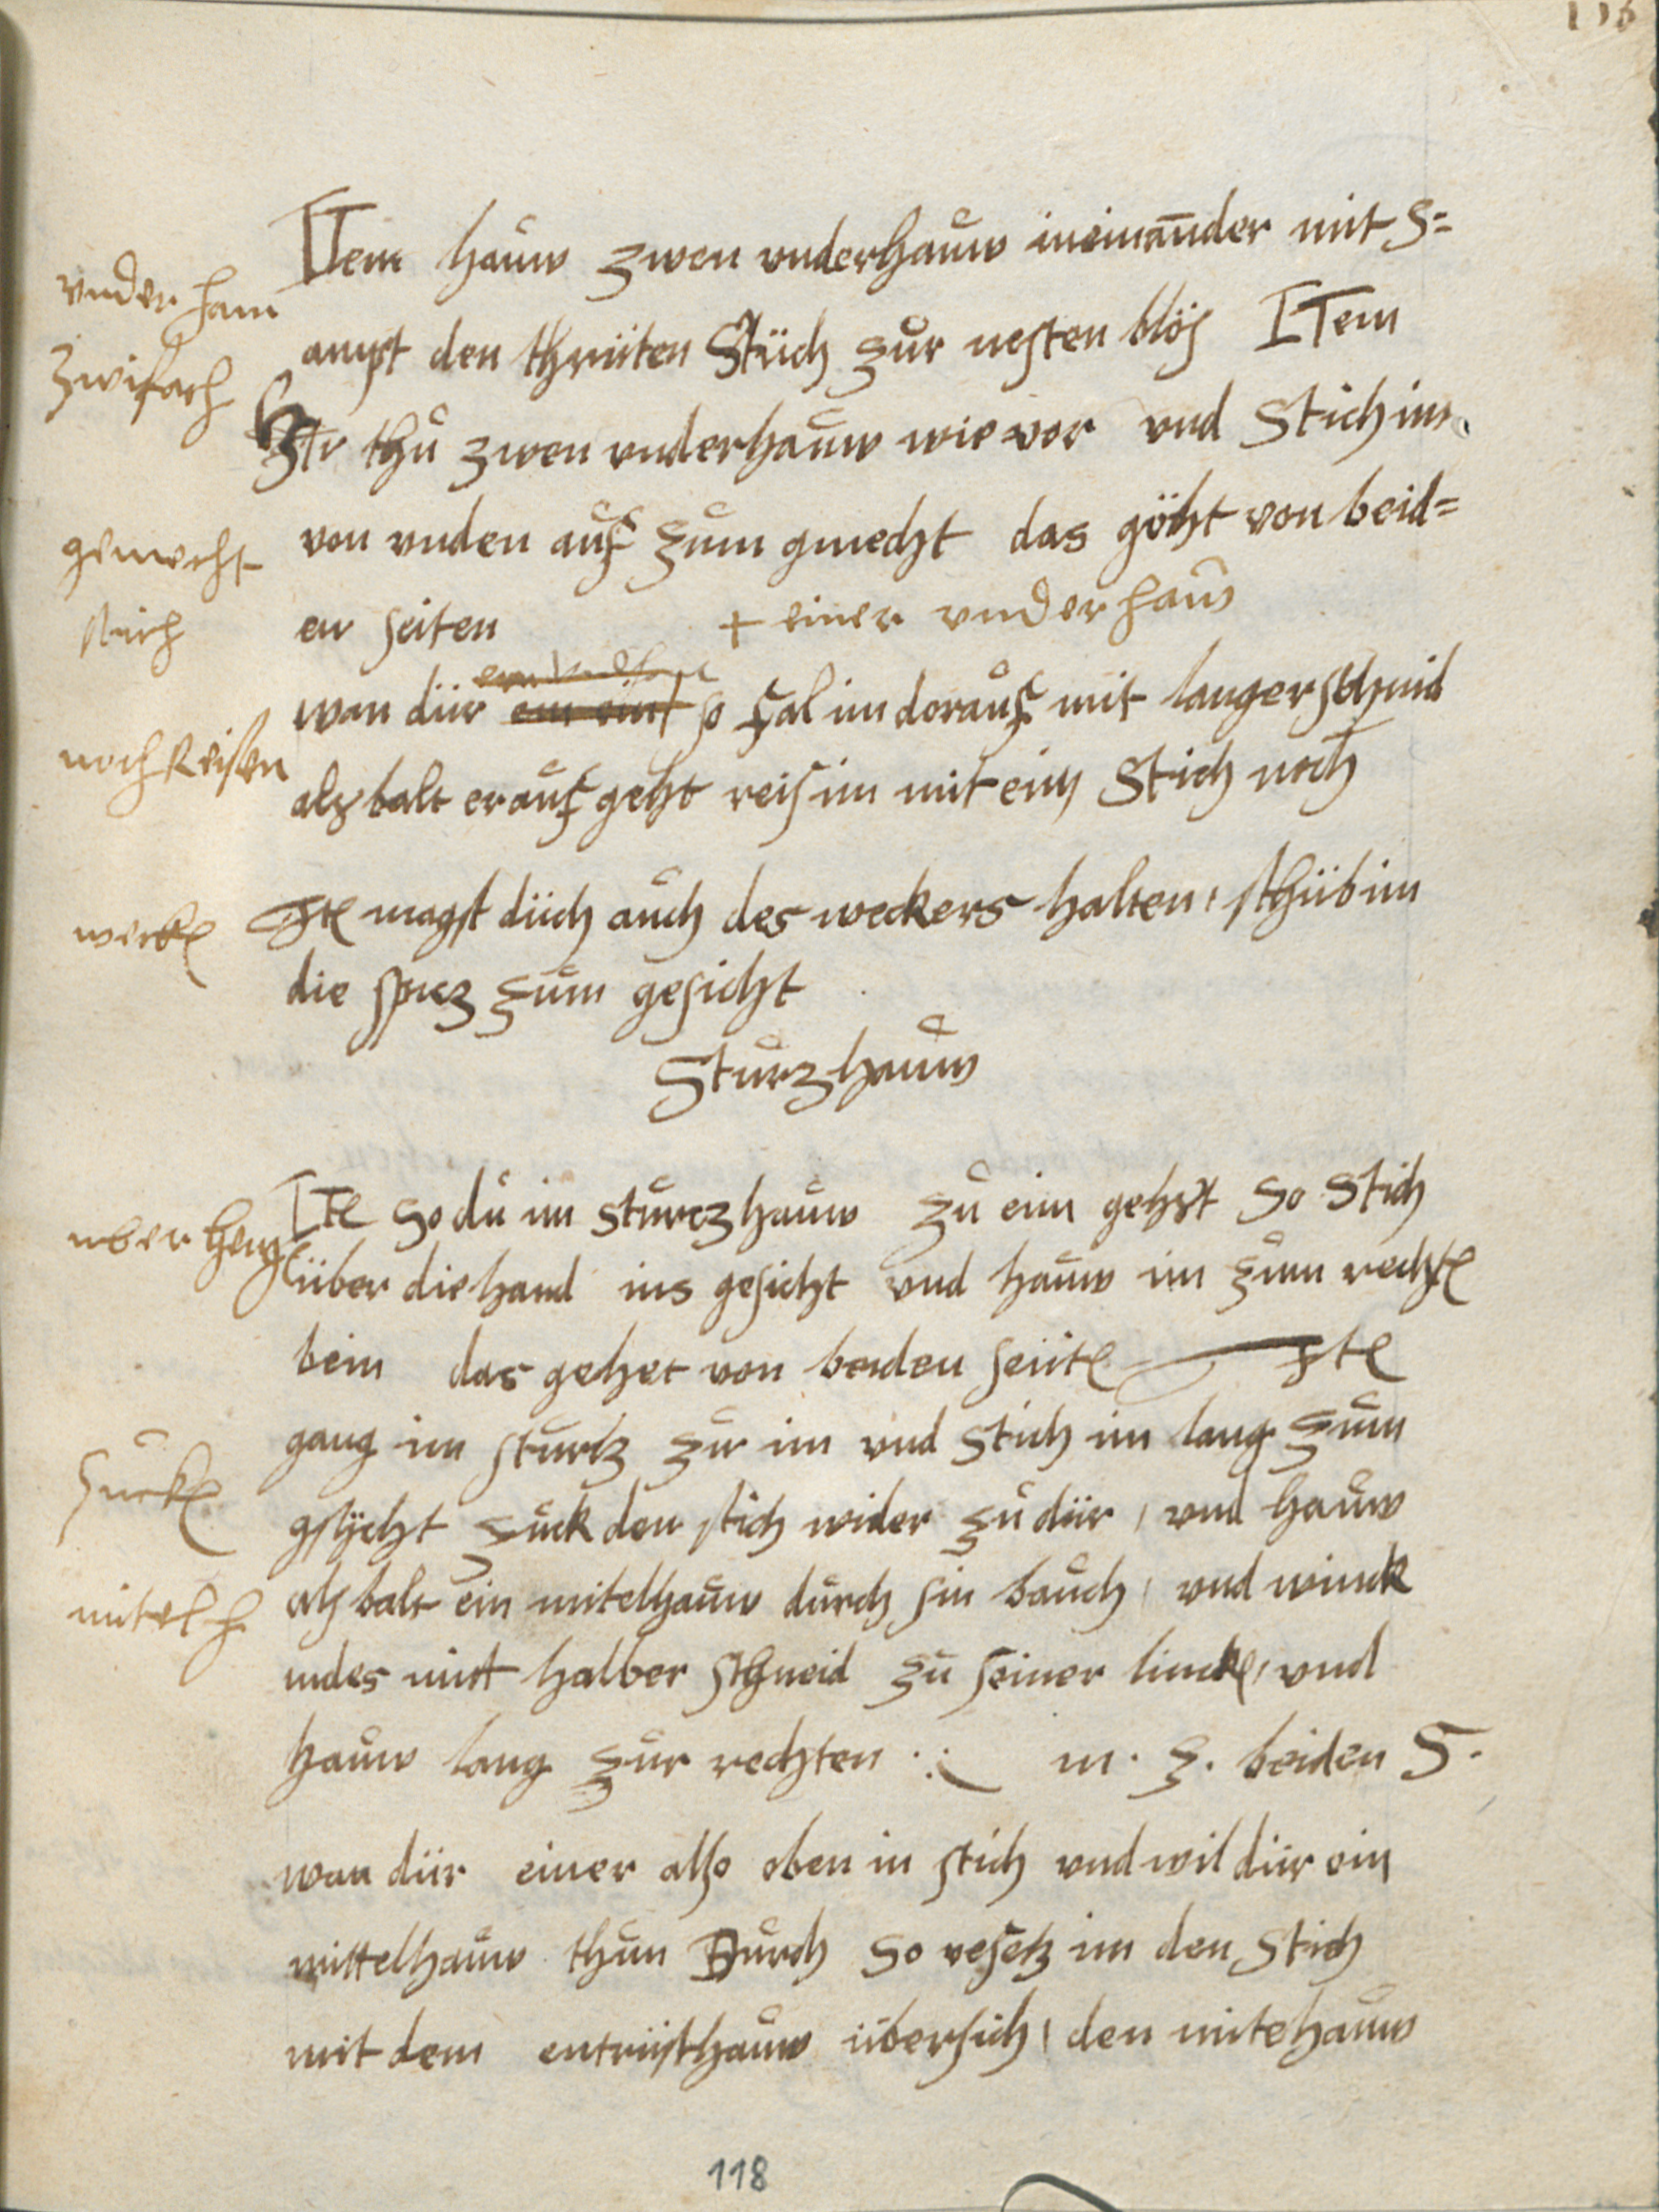 116
ITem hauw zwen vnderhauw ineinander mit s=
vnder hau
ampt den thriiten Stüch zur nesten blös ITem
zwifach
Ite thu zwen vnderhauw wie vor vnd Stich im
von vnden auf zum gmecht das göht von beid=
gemecht
en seiten + einer vnderhauw
stich
wan diir ein eint so fal im dorauf mit langer schnid
nochReisen
alsbalt er aufgeht reis im mit eim Stich noch
Ite magst düch auch des weckers halten, schüb im
weck
die spicz zum gesicht
Sturzhauw
Ite so du im sturczhauw zu eim gehst so stich
uber heng
über die hand ins gesicht vnd hauw im zum recht
bein das gehet von beiden seiit Ite
gang im sturtz zur im vnd stich im lang zum
gsycht zuck den stich wider zu diir, vnd hauw
zuck
alsbalt ein mitelhauw durch sin bauch, vnd winck
mitel h
indes mit halber schneid zu seiner linck, vnd
hauw lang zur rechten m. z. beiden S.
wan diir einer also oben in stich vnd wil diir ein
mittelhauw thun Durch so vesetz im den stich
mit dem entrüsthauw übersich, den mitehauw
118